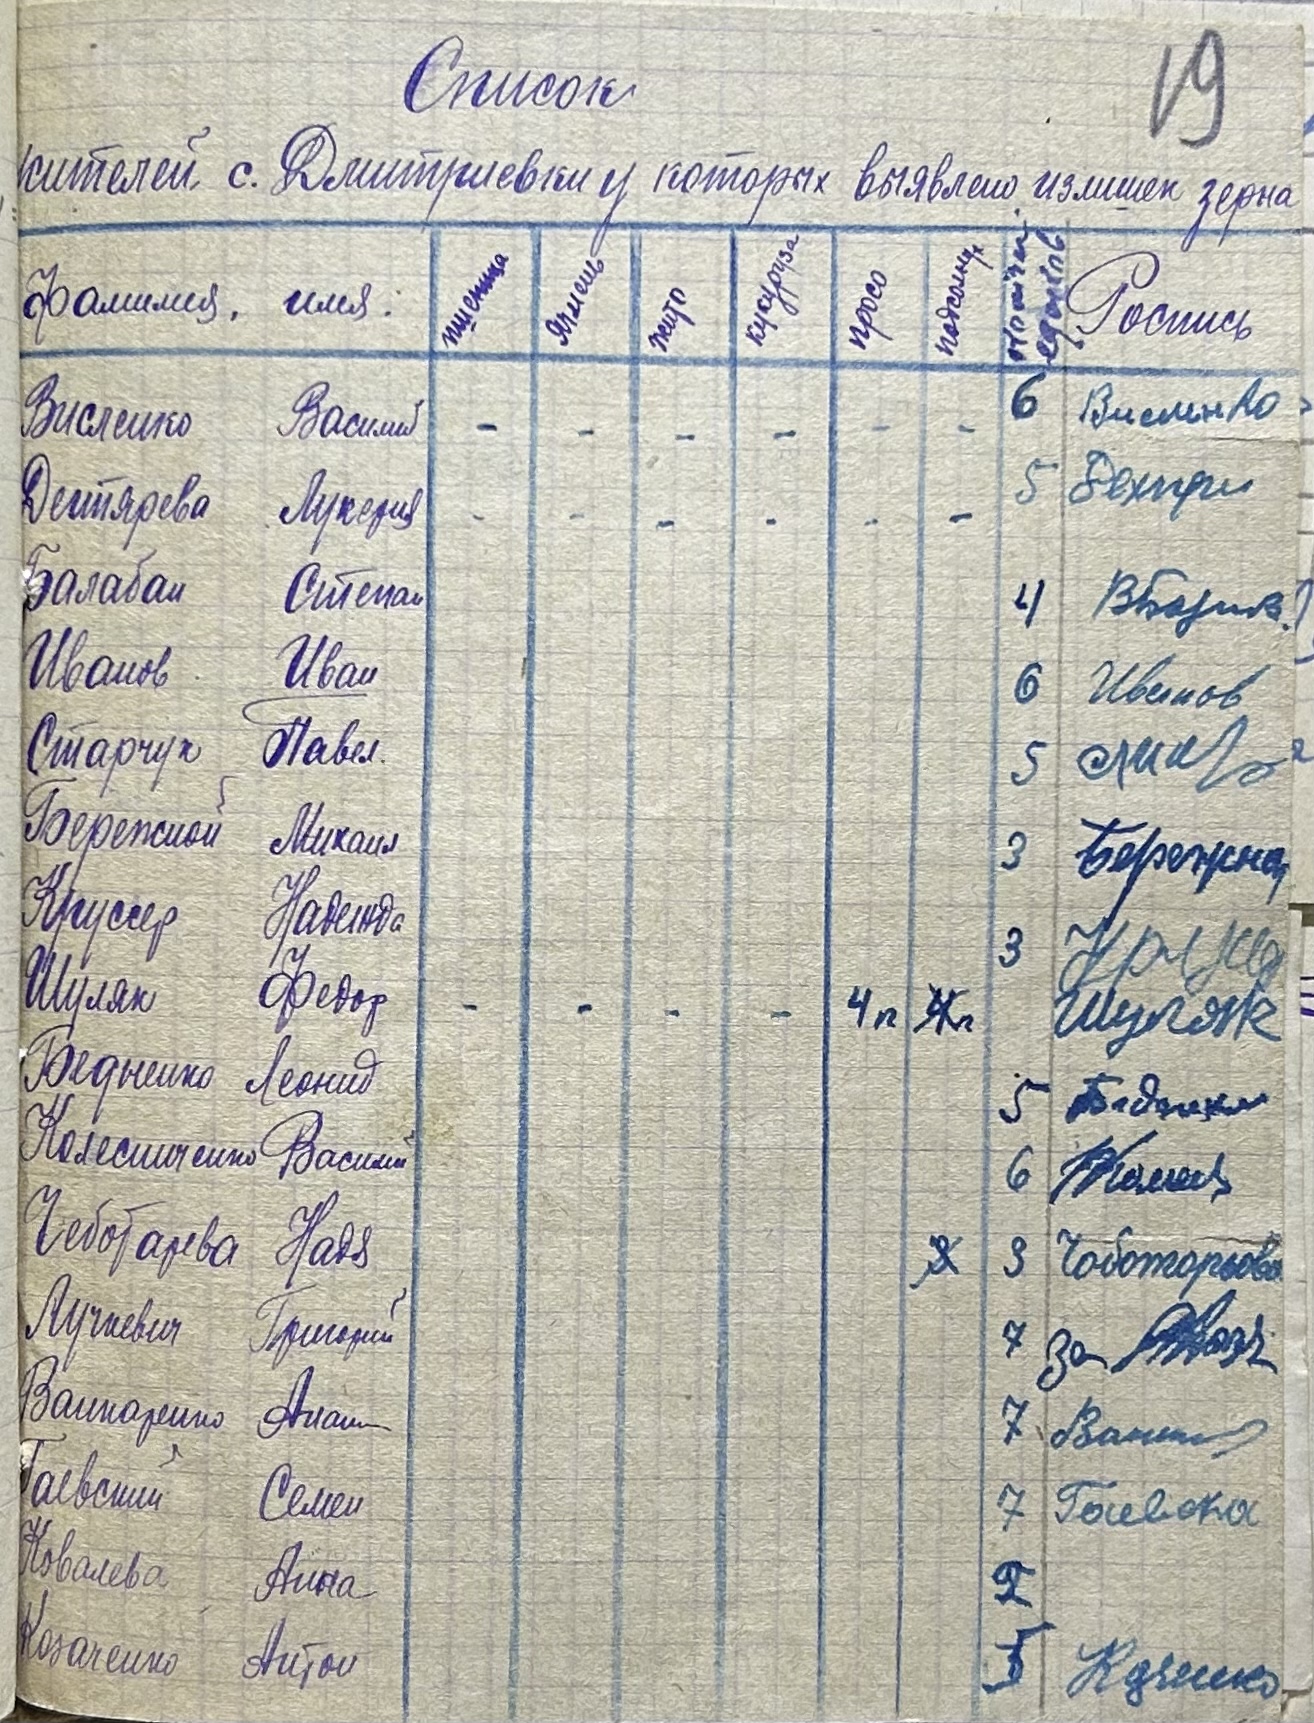 19
Список
жителей с. Дмитриевки у которых выявлено излишек зерна
Фамилия, имя. пшеница ячмень жито кукуруза просо подсолнух едоков Роспись
Висленко Василий - - - - - - 6 Висленко
Дегтярева Лукерия - - - - - - 5
Балабан Степан 4
Иванов Иван 6 Иванов
Старчук Павел. 5
Бережной Михаил 3 Бережна
Круссер Надежда 3
Шуляк Федор - - - - 4п 4п Шуляк
Бедненко Леонид 5
Колесниченко Василий 6
Чеботарева Надя 3 Чоботарьова
Лучкевич Григорий 7 За
Ванжаренко 7
Гаевский Семен 7 Гаевска
Ковалева Анна 2
Козаченко Антон 5